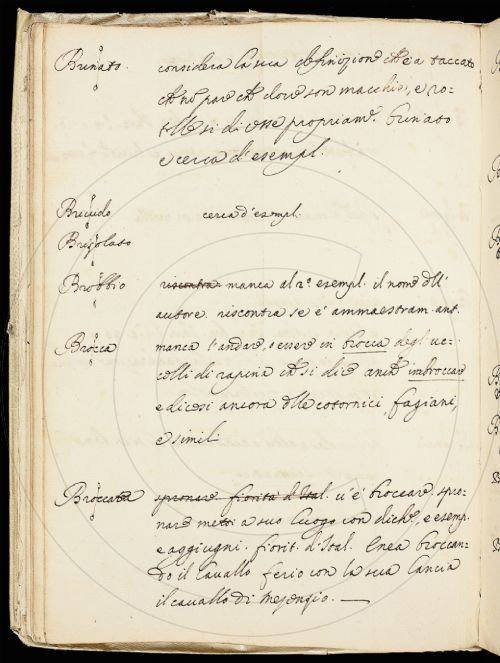 Brunato. considera la sua definizione che è a taccato
che no' pare che dove son macchie, e ro-
telle si di esse propriam.e brunato
e cerca d'esempl.
Bruido cerca d'esempl.
Briolato
Brobbio riscontra manca al 2.o esempl. il nome dll'
autore. riscontra se è ammaestram. ant.
Brocca manca l'andare, essere in brocca degl'uc-
celli di rapina che si dice anche imbroccare
e dicesi ancora delle cotornici, fagiani,
e simili
Broccare spronare fiorita d'Ital. v'è broccare. spro-
nare meti a suo luogo con dich.e, e esemp.
e aggiugni. fiorit. d'Ital. Enea broccan-
do il cavallo ferio con la sua lancia
il cavallo di Mesenzio.